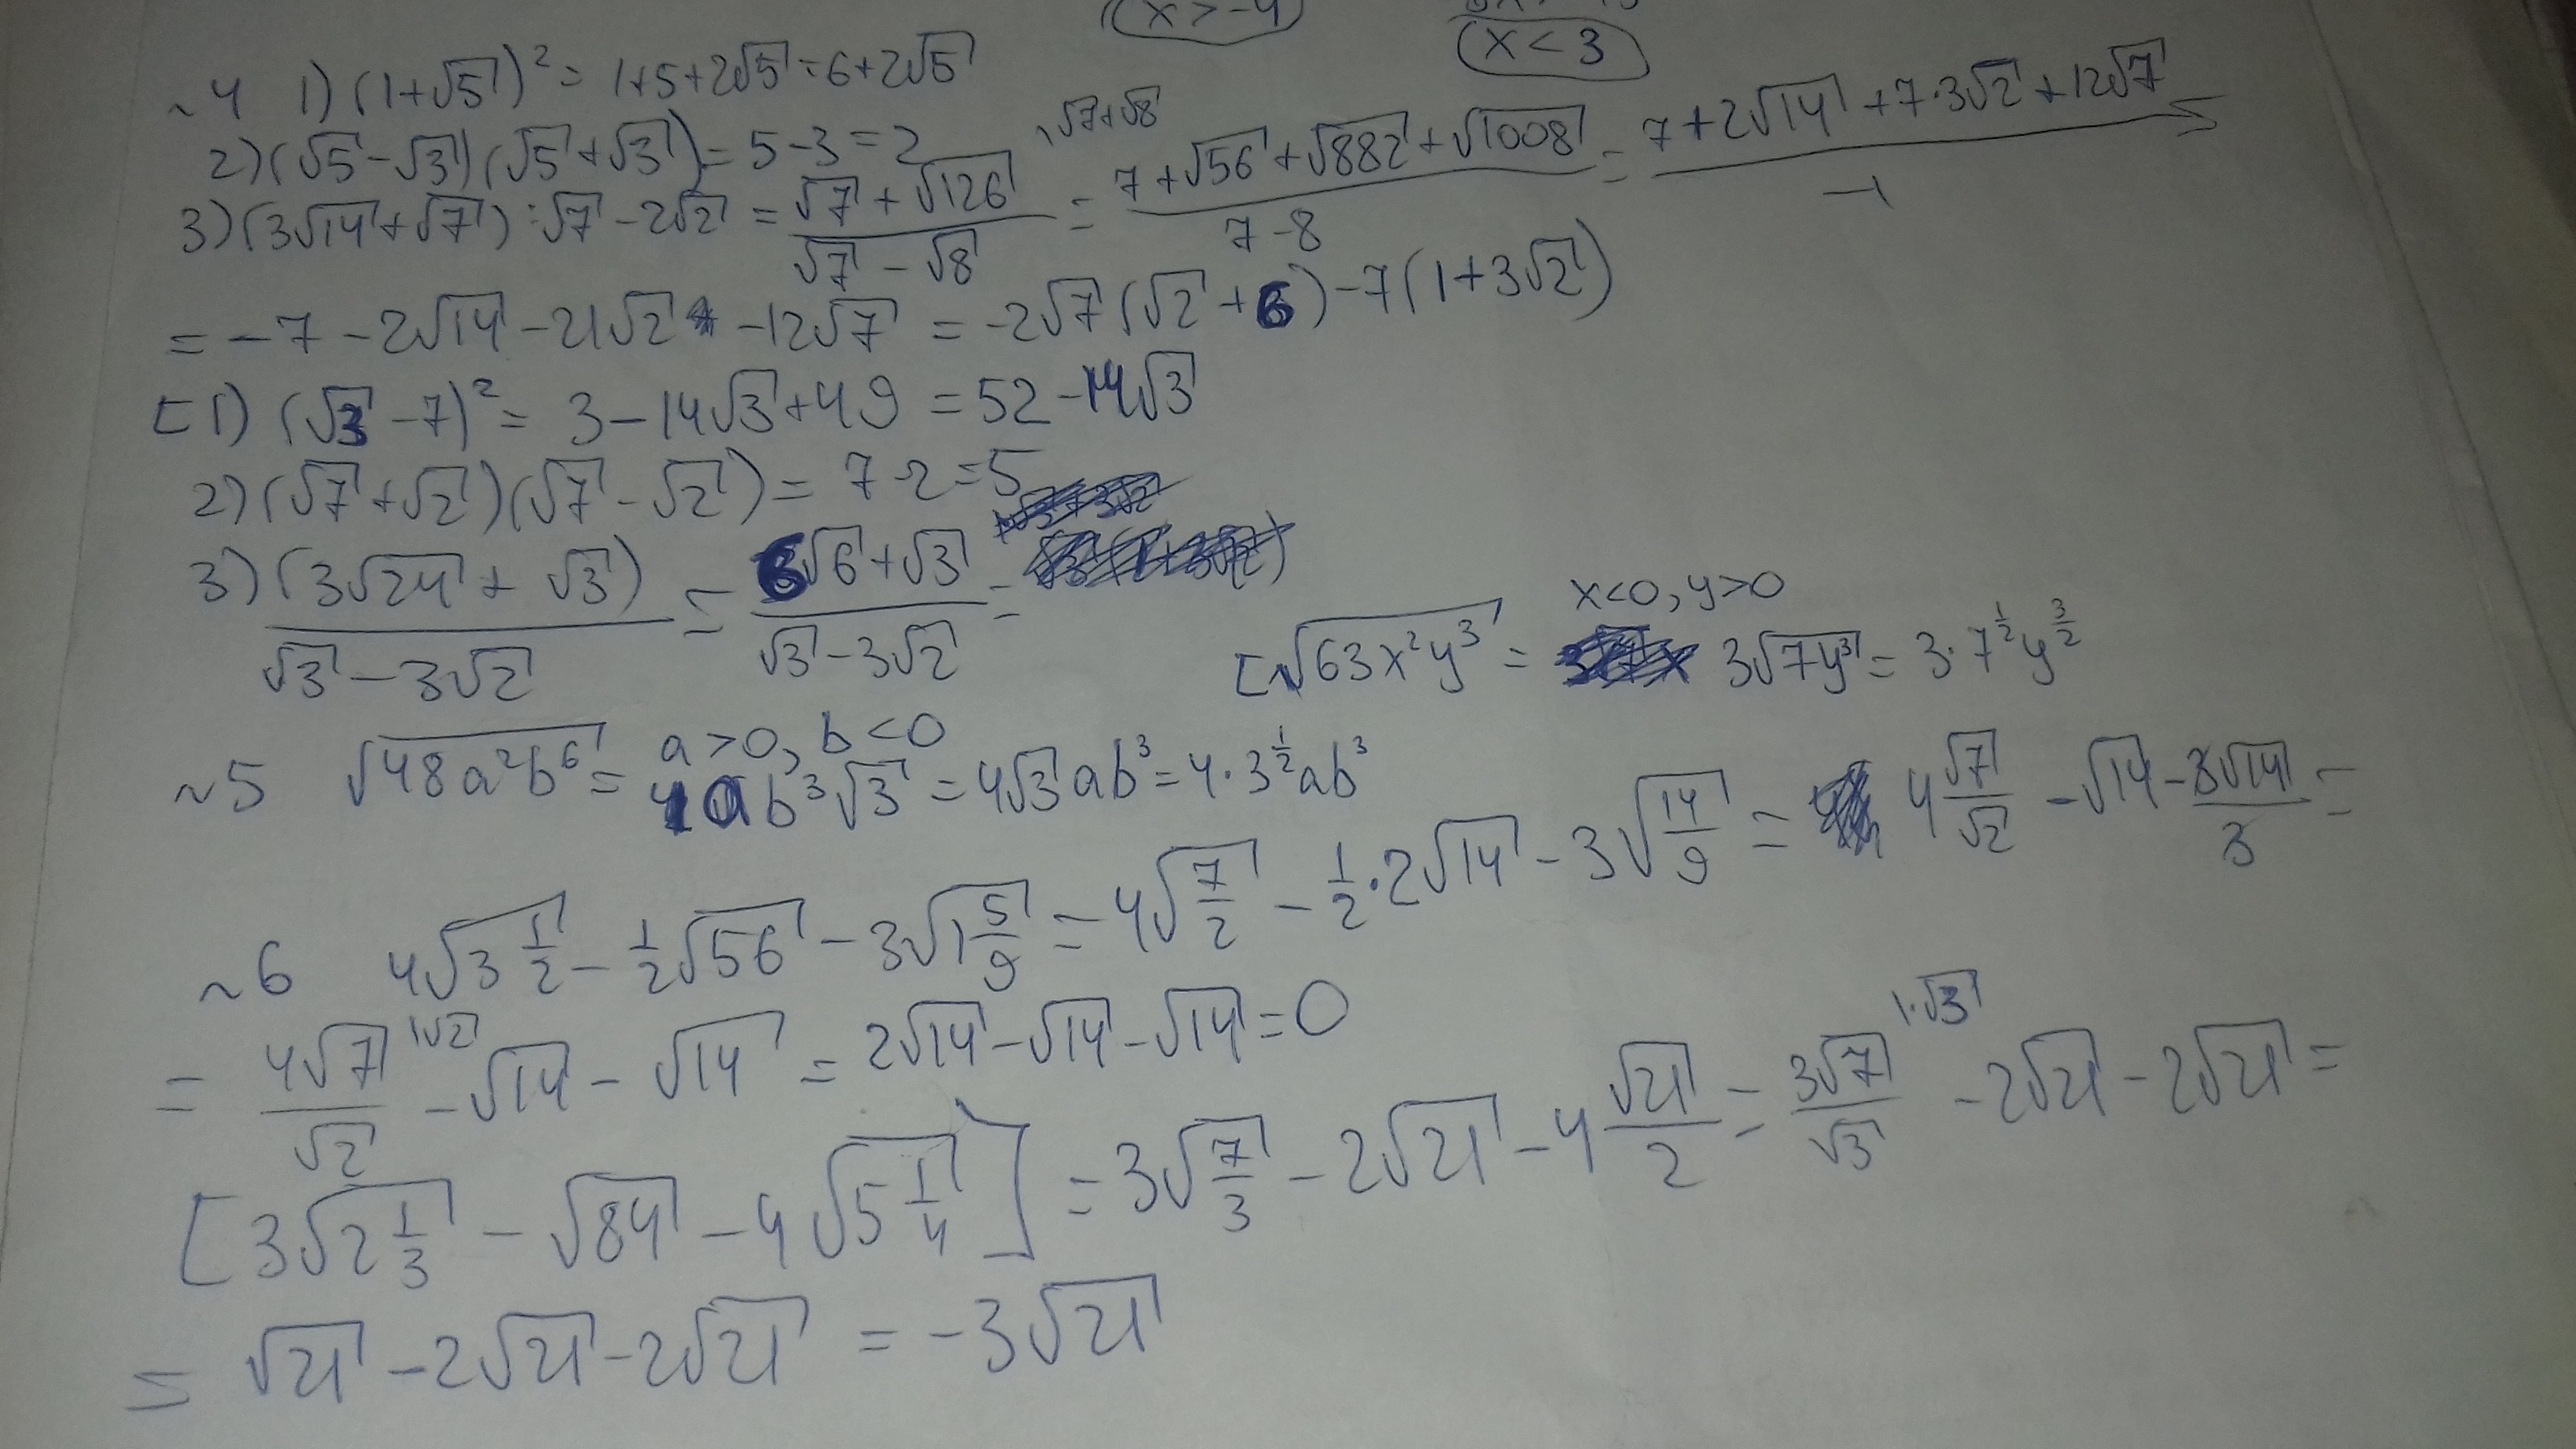 (x > -4)
(x < 3)
~4 1) (1+√5)² = 1+5+2√5 = 6+2√5
2) (√5-√3)(√5+√3) = 5-3 = 2
3) (3√14+√7) : √7 - 2√2 = (√7+√126)/(√7-√8) ^(·√7+√8) = (7+√56+√882+√1008)/(7-8) = (7+2√14+7·3√2+12√7)/(-1) =
= -7 -2√14 -21√2 -12√7 = -2√7(√2+6) -7(1+3√2)
[1) (√3-7)² = 3-14√3+49 = 52-14√3
2) (√7+√2)(√7-√2) = 7-2=5
3) (3√24 + √3)/(√3-3√2) = (6√6+√3)/(√3-3√2) =
x<0, y>0
[√63x²y³ = 3√7y³ = 3·7^(1/2)y^(3/2)
a>0, b<0
~5 √48a²b⁶ = 4ab³√3 = 4√3ab³ = 4·3^(1/2)ab³
~6 4√3 1/2 - 1/2√56 - 3√1 5/9 = 4√7/2 - 1/2·2√14 - 3√14/9 = 4 √7/√2 - √14 - 3√14/3 =
= 4√7/√2 ^(1√2) - √14 - √14 = 2√14-√14-√14=0
[3√2 1/3 - √84 - 4√5 1/4] = 3√7/3 - 2√21 - 4 √21/2 = 3√7/√3 ^(1·√3) - 2√21 - 2√21 =
= √21 - 2√21 - 2√21 = -3√21